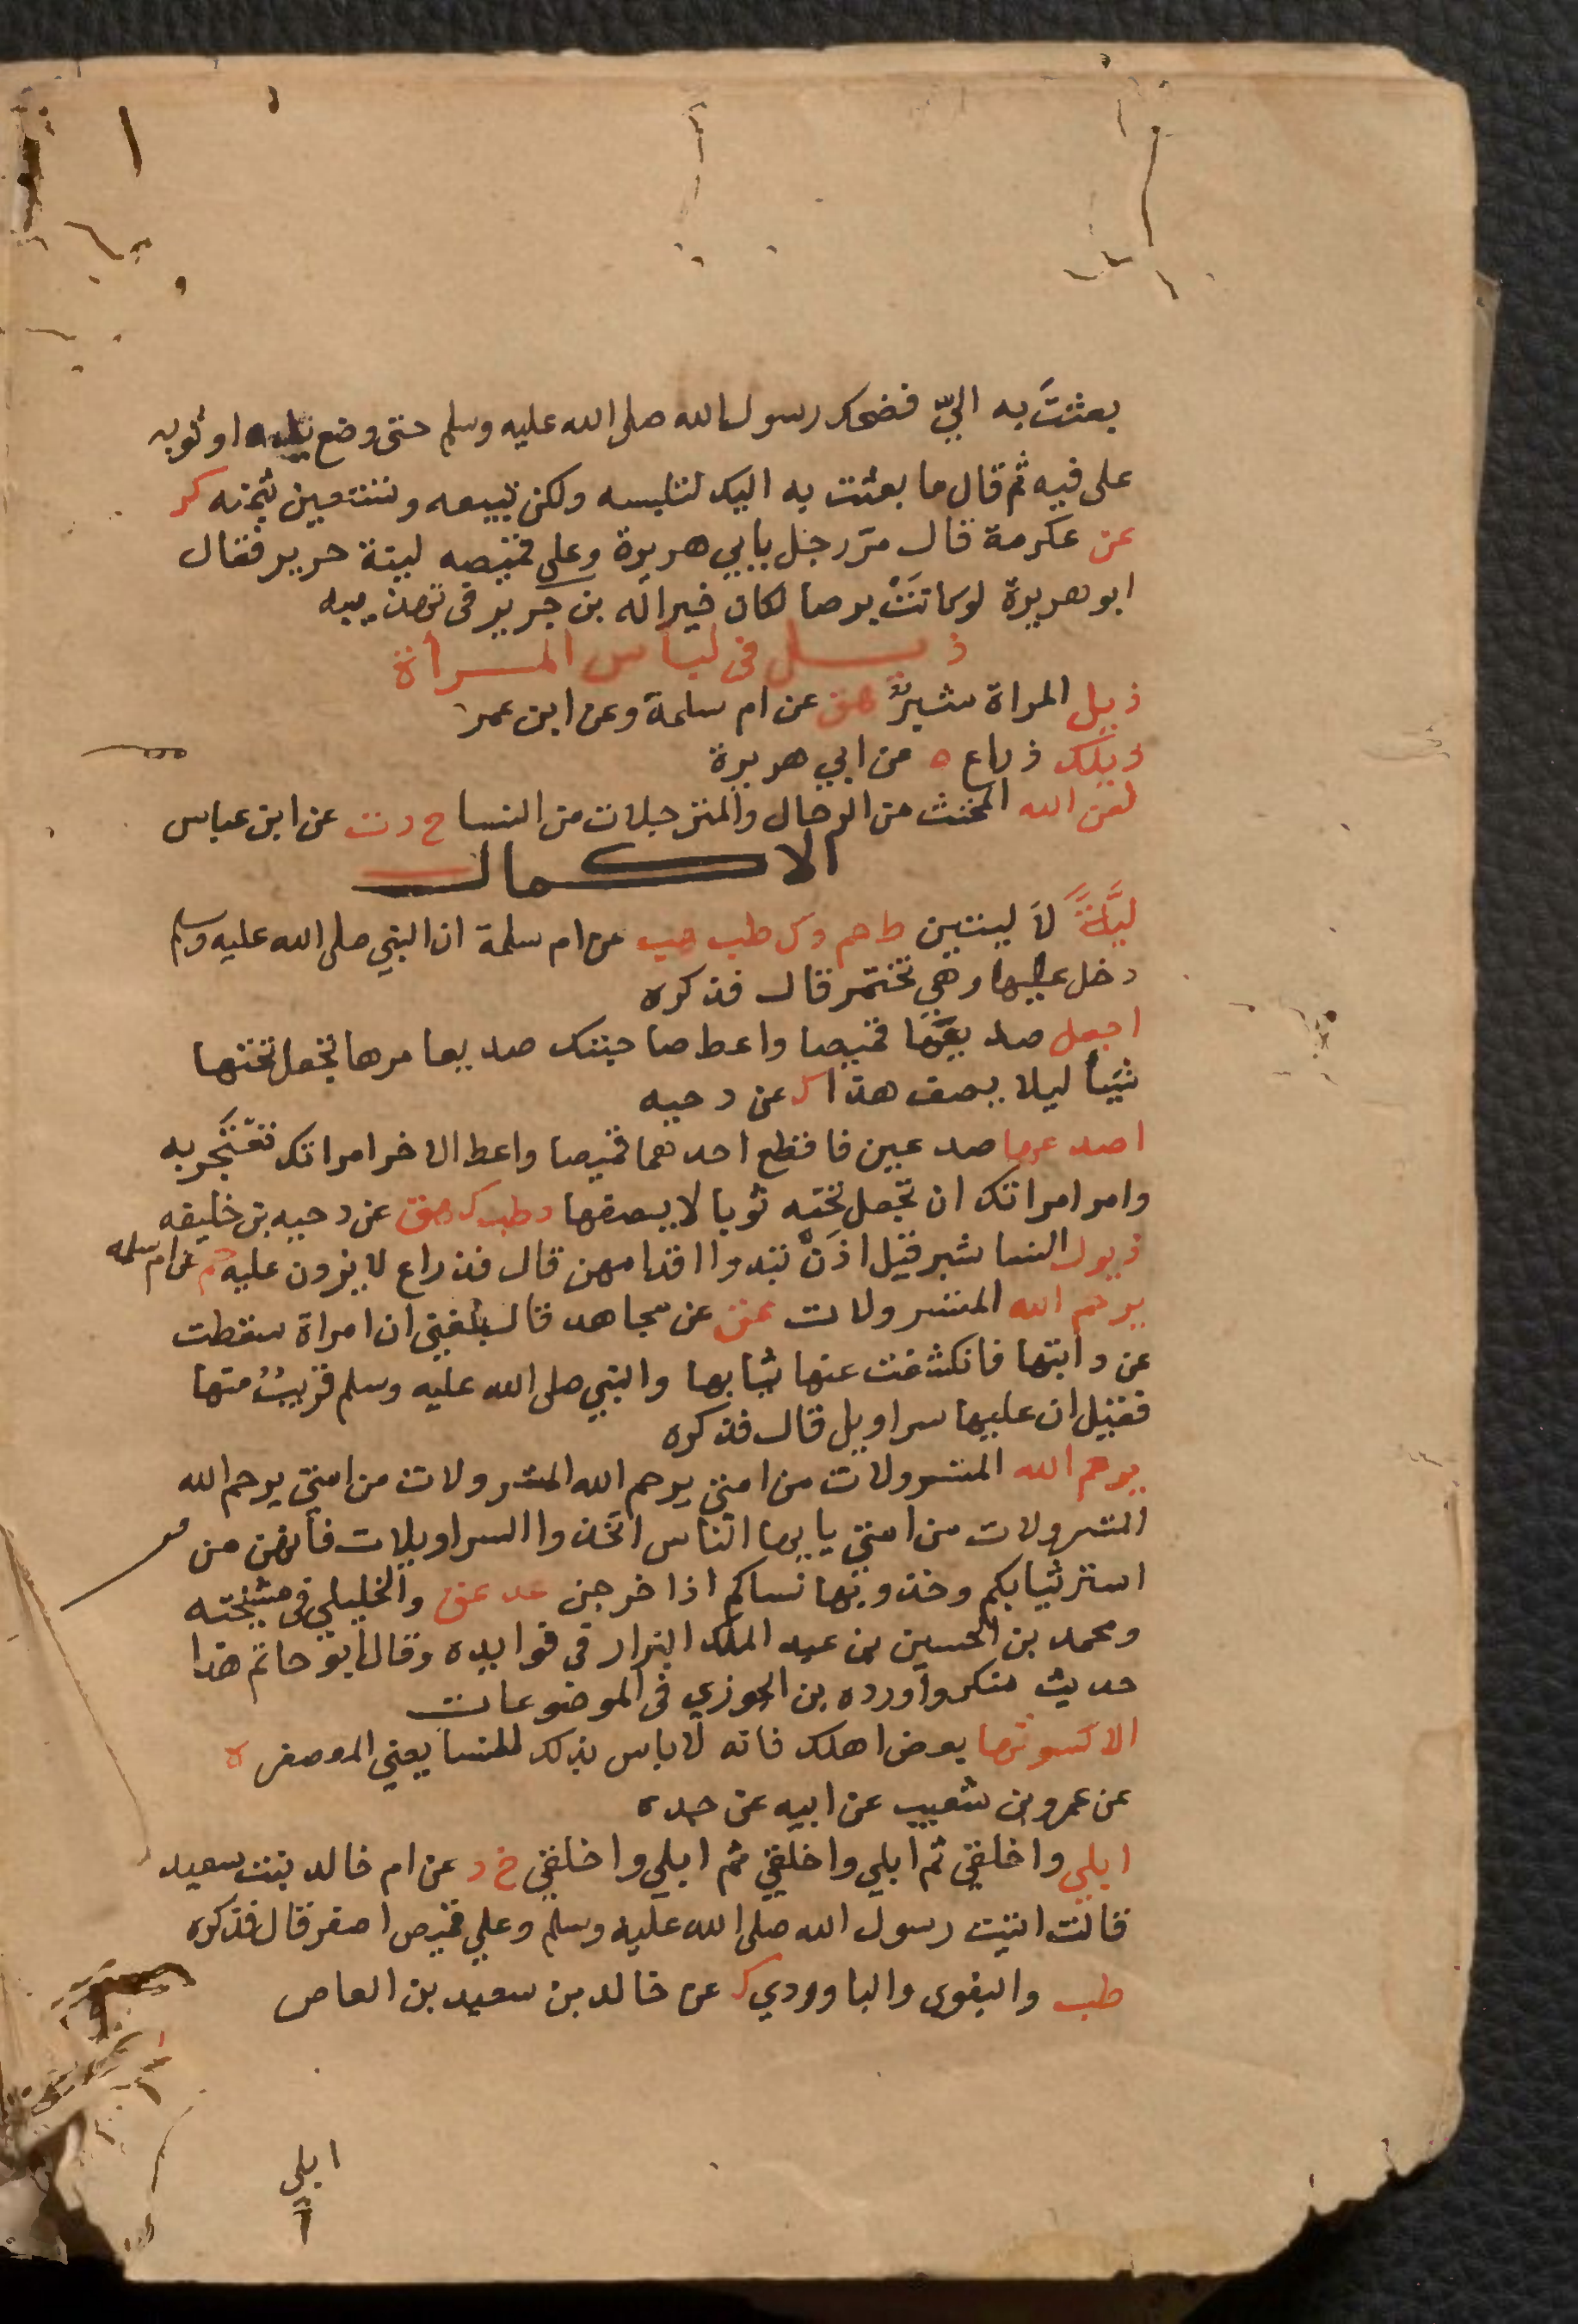 بعثتَ به اليّ فضحك رسول الله صلى الله عليه وسلم حتى وضع او ثوبه
على فيه ثم قال ما بعثت به اليك لتلبسه ولكن تبيعه وتستعين بثمنه كر
عن عكرمة قال مرّ رجل بابي هريرة وعلى قميصه لبنة حرير فقال
ابو هريرة لو كانت برصا لكان خيرا له بن جرير في تهذيبه
ذيل في لباس المرأة
ذيل المراة شبرٌ هق عن ام سلمة وعن ابن عمر
ذيلك ذراع ه من ابي هريرة
لعن الله المخنث من الرجال والمترجلات من النسا ح د ت عن ابن عباس
الاكمال
ليَّةً لا ليتين ط حم د ك طب هب عن ام سلمة ان النبي صلى الله عليه وسلم
دخل عليها وهي تختمر قال فذكره
اجعل صديعها قميصا واعط صاحبتك صديعا مرها تجعل تحتها
شيأ ليلا يصف هذا ك عن دحيه
اصدعها صدعين فاقطع احدهما قميصا واعط الاخر امراتك تعتجر به
وامر امراتك ان تجعل تحته ثوبا لا يصفها د طب ك هق عن دحيه بن خليفه
ذيول النسا شبر قيل اذن تبدوا اقدامهن قال فذراع لا يزدن عليه حم عن ام سلمه
يرحم الله المتسرولات عق عن مجاهد قال بلغني ان امراة سقطت
عن دابتها فانكشفت عنها ثيابها والنبي صلى الله عليه وسلم قريبٌ منها
فقيل ان عليها سراويل قال فذكره
يرحم الله المتسرولات من امتي يرحم الله المتسرولات من امتي يرحم الله
المتسرولات من امتي يا يها الناس اتخذوا السراويلات فانهن من
استر ثيابكم وخذوبها نساكم اذا خرجن عد عق والخليلي في مشيخته
ومحمد بن الحسين بن عبد الملك البزار في فوايده وقال ابو حاتم هذا
حديث منكر واورده بن الجوزي في الموضوعات
الا كسوتها بعض اهلك فانه لا باس بذلك للنسا يعني المعصفر ه
عن عمرو بن شعيب عن ابيه عن جده
ابلي واخلقي ثم ابلي واخلقي ثم ابلي واخلقي خ د عن ام خالد بنت سعيد
قالت اتيت رسول الله صلى الله عليه وسلم وعلي قميص اصفر قال فذكره
طب والبغوى والباوردي ك عن خالد بن سعيد بن العاص
ابلي